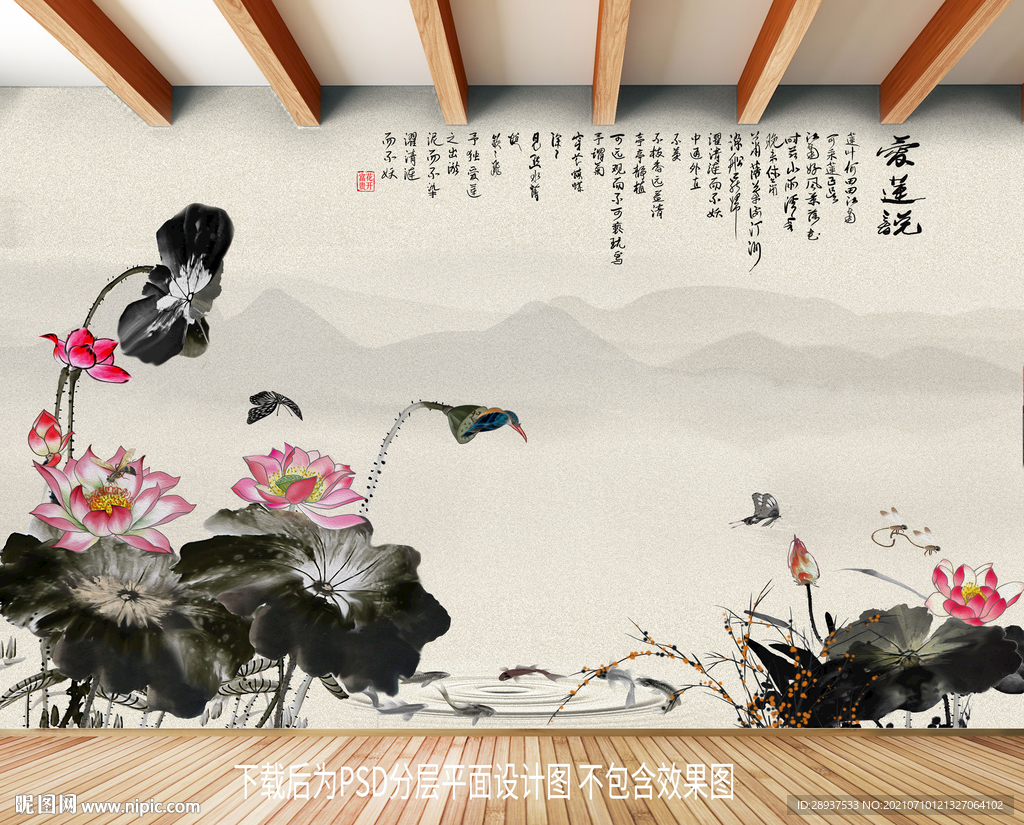 愛蓮說
莲叶何田田江南
可采莲正是
江南好风景落花
濯清涟而不妖
中通外直
不蔓
不枝香远益清
亭亭静植
可远观而不可亵玩焉
予谓菊
穿花蛱蝶
深々
见点水蜻
蜓
款々飛
予独爱莲
之出淤
泥而不染
濯清涟
而不妖
花开
富贵
下载后为PSD分层平面设计图 不包含效果图
昵图网 www.nipic.com
ID:28937533 NO:20210710121327064102